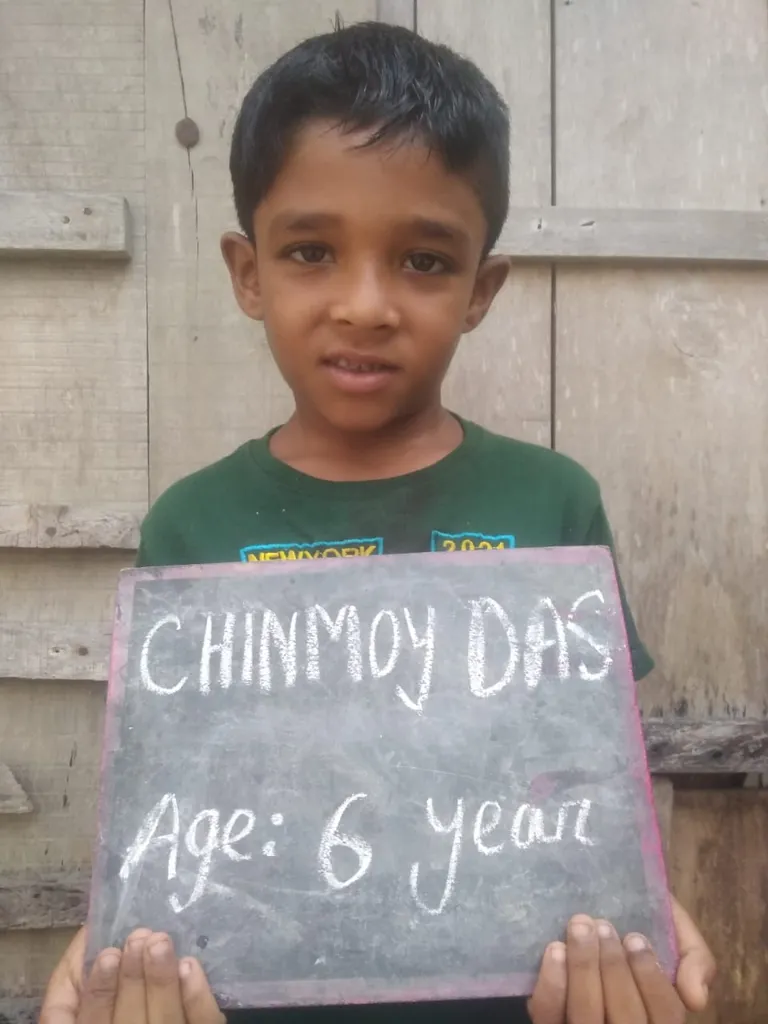 NEWYORK 2021
CHINMOY DAS
Age: 6 year